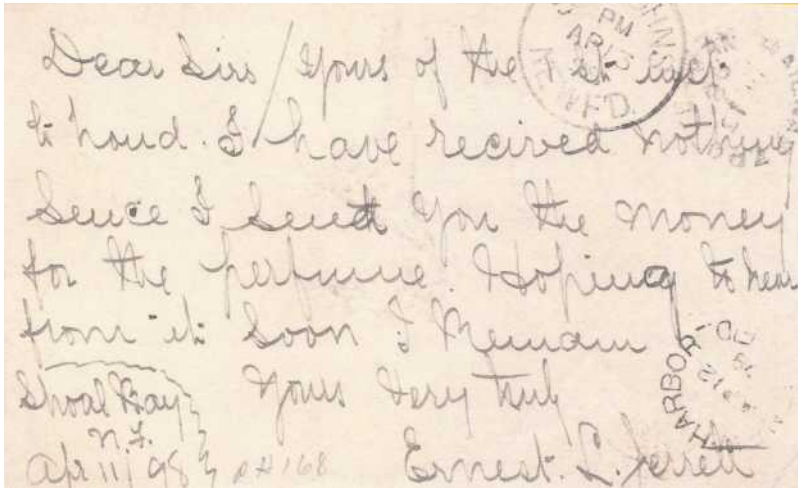 Dear Sirs / Yours of the 1 st inst
to hand. I have recived nothing
sence I sent you the money
for the perfume. Hoping to hear
from it soon I Remain
Yours Very truly
Ernest. L. Jerrett
Shoal Bay
N.F.
Apr 11/98
PM
AP 13
NEWF'D.
HARBOR